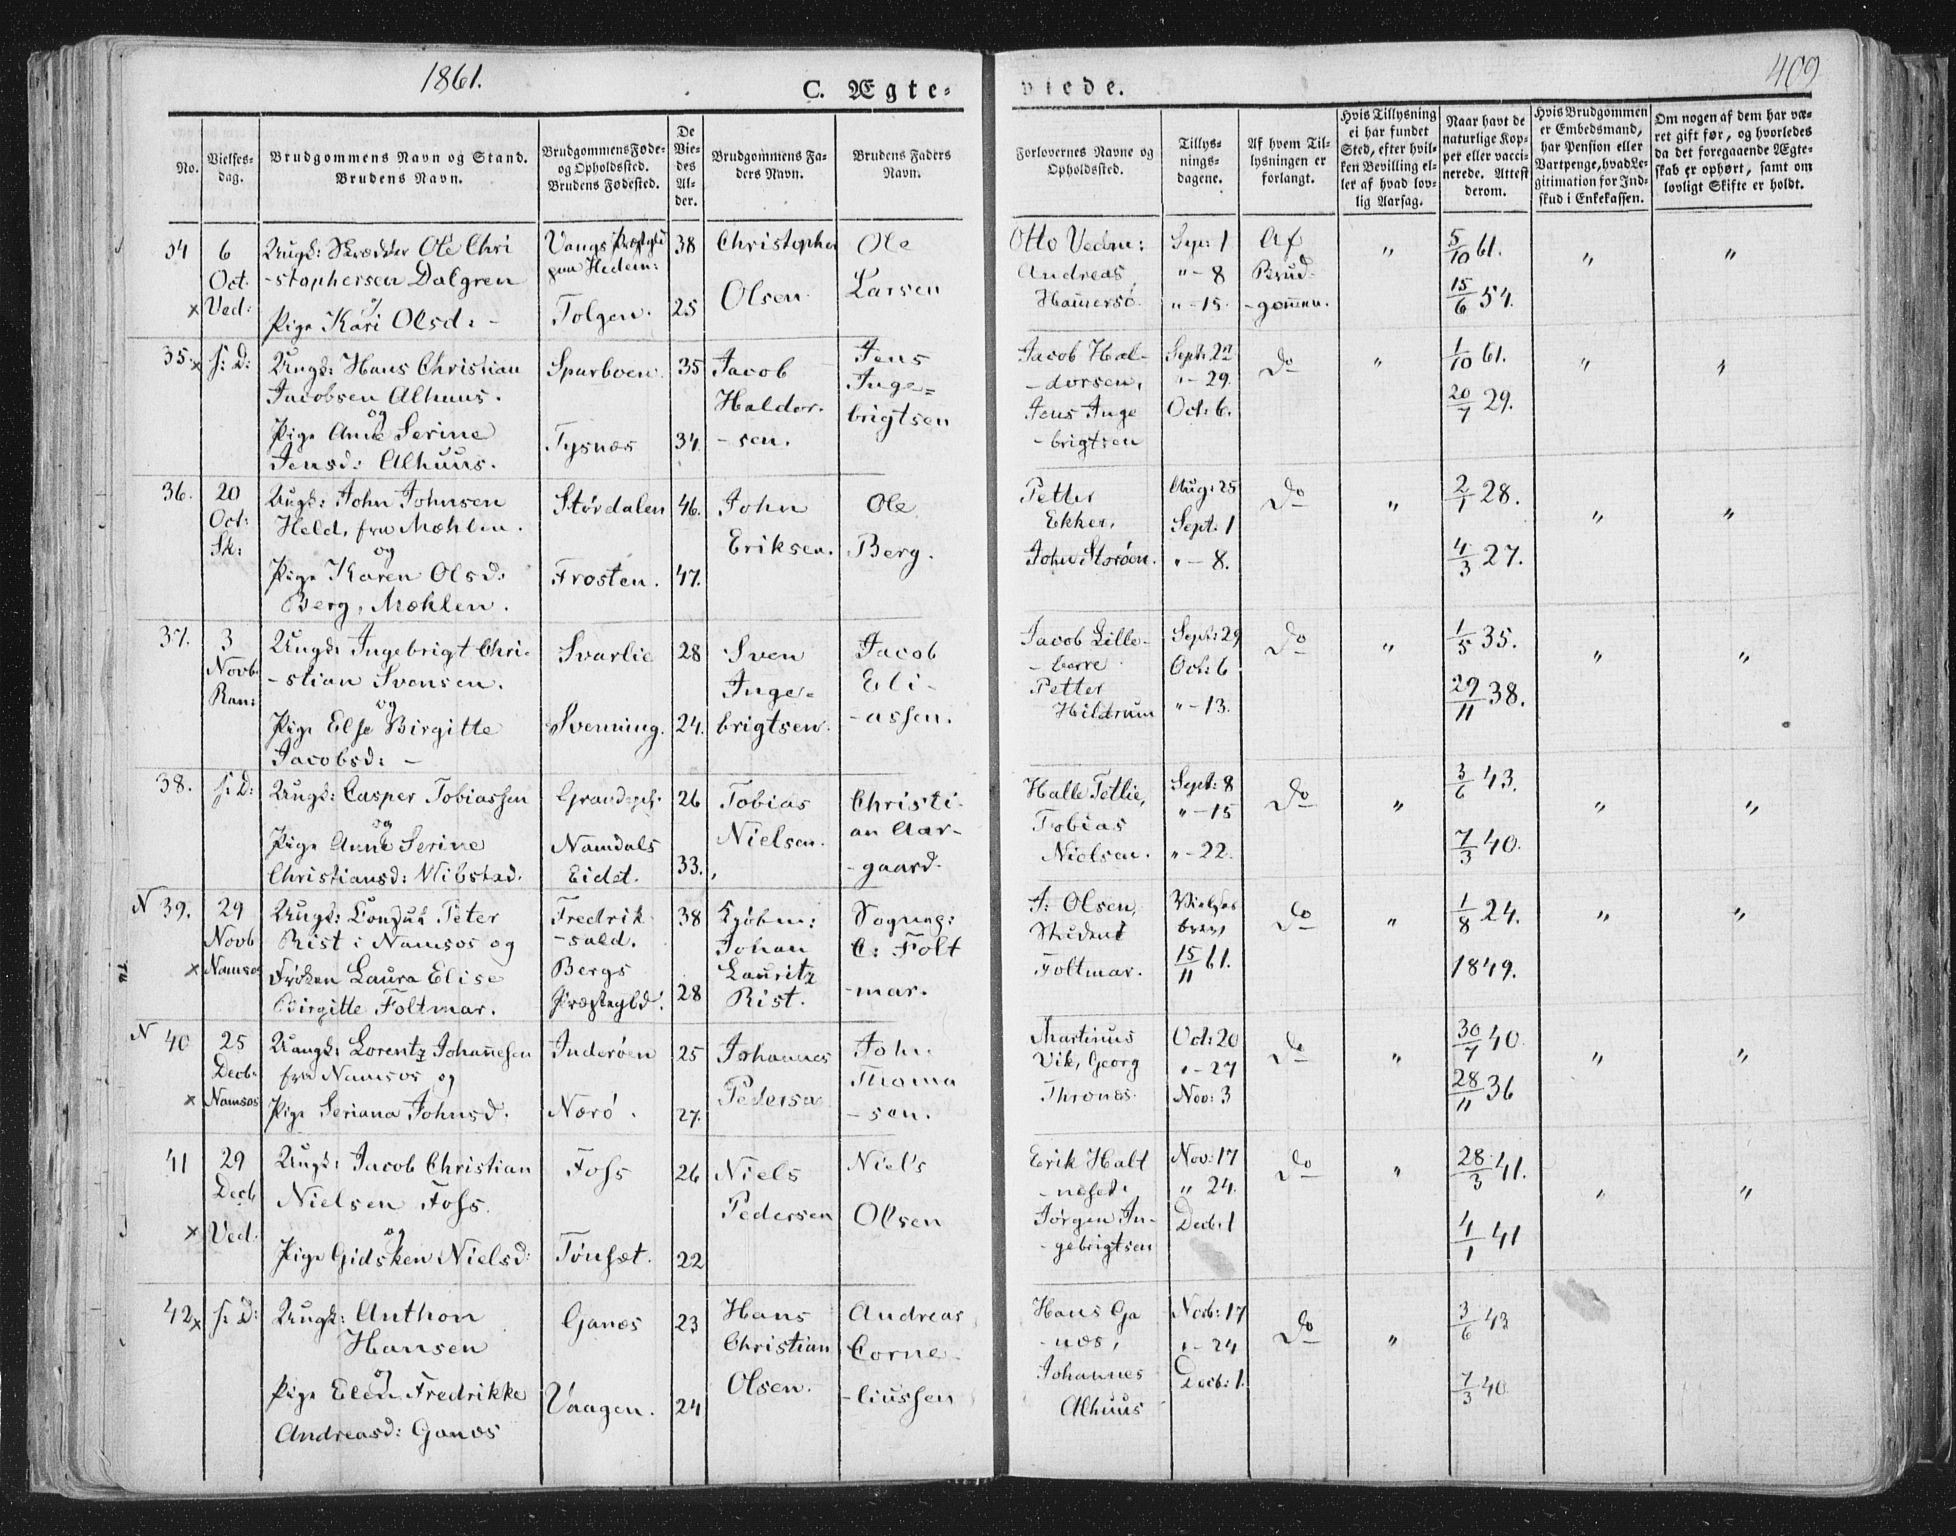 1861.
C. Ægteviede.
409
No.
Vielses-
dag.
Brudgommens Navn og Stand.
Brudens Navn.
Brudgommens Føde-
og Opholdssted.
Brudens Fødested.
De
Vie-
des
Al-
der.
Brudgommens Fa-
ders Navn.
Brudens Faders
Navn.
Forlovernes Navne og
Opholdssted.
Tillys-
nings-
dagene.
Af hvem Til-
lysningen er
forlangt.
Hvis Tillysning
ei har fundet
Sted, efter hvil-
ken Bevilling el-
ler af hvad lov-
lig Aarsag.
Naar havt de
naturlige Kop-
per eller vacci-
nerede. Attest
derom.
Hvis Brudgommen
er Embedsmand,
har Pension eller
Vartpenge, hvad Le-
gitimation for Ind-
skud i Enkekassen.
Om nogen af dem har væ-
ret gift før, og hvorledes
da det foregaaende Ægte-
skab er ophørt, samt om
lovligt Skifte er holdt.
34
6
Oct.
x Ved:
Ungk: Skrædder Ole Chri
-stophersen Dalgren
og
Pige Kari Olsd: -
Vangs Præstegld
paa Hedem:
Tolgen.
38
25
Christopher
Olsen
Ole
Larsen
Otto Vedm:
Andreas
Hamersö.
Sep: 1
" - 8
" - 15.
Af
Brud-
-gommen.
"
5/10 61.
15/6 54.
"
"
35. x
s: D:
Ungk: Hans Christian
Jacobsen Alhuus.
og
Pige Anne Serine
Jensd: Alhuus.
Sparboen.
Tysnæs
35
34.
Jacob
Haldor-
-sen.
Jens
Inge=
brigtsen
Jacob Hal-
-dorsen,
Jens Inge
-brigtsen
Sept: 22
" - 29.
Oct: 6.
Do
"
1/10 61.
20/7 29.
"
"
36.
20
Oct:
Sk:
Ungk: John Johnsen
Held, fra Mæhlen.
og
Pige Karen Olsd:
Berg, Mæhlen.
Stördalen
Frosten.
46.
47.
John
Eriksen.
Ole
Berg.
Petter
Ekker,
John Storöen.
Aug: 25
Sept: 1
" - 8.
Do
"
2/1 28.
4/3 27.
"
"
37.
3
Novb.
Ran:
Ungk: Ingebrigt Chri-
-stian Svensen.
og
Pige Else Birgitte
Jacobsd: -
Svarlie
Svenning.
28
24.
Sven
Inge-
brigtsen.
Jacob
Eli-
-assen.
Jacob Lille-
-berre
Petter
Hildrum
Sept: 29
Oct: 6
" - 13.
Do
"
1/5 35.
29/11 38.
"
"
38.
s: D:
Ungk: Casper Tobiassen
og
Pige Anne Serine
Christiansd: Vlibstad.
Namdals
Eidet.
26
33.
Tobias
Nielsen.
Christi-
an Aar-
-gaard.
Halle Tetlie,
Tobias
Nielsen.
Sept: 8
" - 15
" - 22.
Do
"
3/6 43.
7/3 40.
"
"
N 39.
29
Novb
x Namsos
Ungk: Consul Peter
Rist i Namsos og
Fröken Laura Elise
Birgitte Foltmar.
Fredrik-
-sald.
Bergs
Præstegld.
38
28
Kjöbm:
Johan
Lauritz
Rist.
Sognepr:
C: Folt
-mar.
J: Olsen,
Student
Foltmar.
Vielses
brev
15/11 61.
Do
"
1/8 24.
1849.
"
"
N 40
25
Decb.
x Namsos
Uangk: Lorentz Johannesen
fra Namsos og
Pige Seriana Johnsd.
Inderöen
Nærö.
25
27.
Johannes
Pedersen
John
Thoma
-sen.
Martinus
Vik, Georg
Thronæs.
Oct: 20
" - 27
Nov: 3
Do
"
30/7 40.
28/11 36
"
"
41
29
Decb
x Ved.
Ungk: Jacob Christian
Nielsen Foss.
og
Pige Gidsken Nielsd:
Foss
Tönset.
26
22
Niels
Pedersen
Niels
Olsen
Erik Halt
-næset.
Jörgen In-
-gebrigtsen
Nov: 17
" 24.
Decb: 1
Do
"
28/3 41.
4/1 41
"
"
42 x
s: D:
Ungk: Anthon
Hansen
og
Pige Elen Fredrikke
Andreasd: Ganæs
Ganæs
Vaagen.
23
24
Hans
Christian
Olsen.
Andreas
Corne-
-liussen
Hans Ga
-næs,
Johannes
Alhuus
Novb: 17
" - 24
Decb: 1.
Do
"
3/6 43
7/3 40